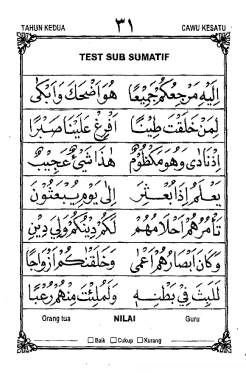 TAHUN KEDUA ٣١ CAWU KESATU
TEST SUB SUMATIF
اِلَيْهِ مَرْجِعُكُمْ جَمِيْعًا هُوَ اَضْحَكَ وَاَبْكٰى
لِمَنْ خَلَقْتَ طِيْنًا اَفْرِغْ عَلَيْنَا صَبْرًا
اِذْ نَادٰى وَهُوَ مَكْظُوْمٌ هٰذَا شَيْءٌ عَجِيْبٌ
يَعْلَمُ اِذَا بُعْثِرَ اِلٰى يَوْمِ يُبْعَثُوْنَ
تَأْمُرُهُمْ اَحْلَامُهُمْ لَكُمْ دِيْنُكُمْ وَلِيَ دِيْنِ
وَكَانَ اَبْصَارُهُمْ اَعْمٰى وَخَلَقْنٰكُمْ اَزْوَاجًا
لَلَبِثَ فِيْ بَطْنِهٖ وَلَمُلِئْتَ مِنْهُمْ رُعْبًا
Orang tua NILAI Guru
Baik Cukup Kurang